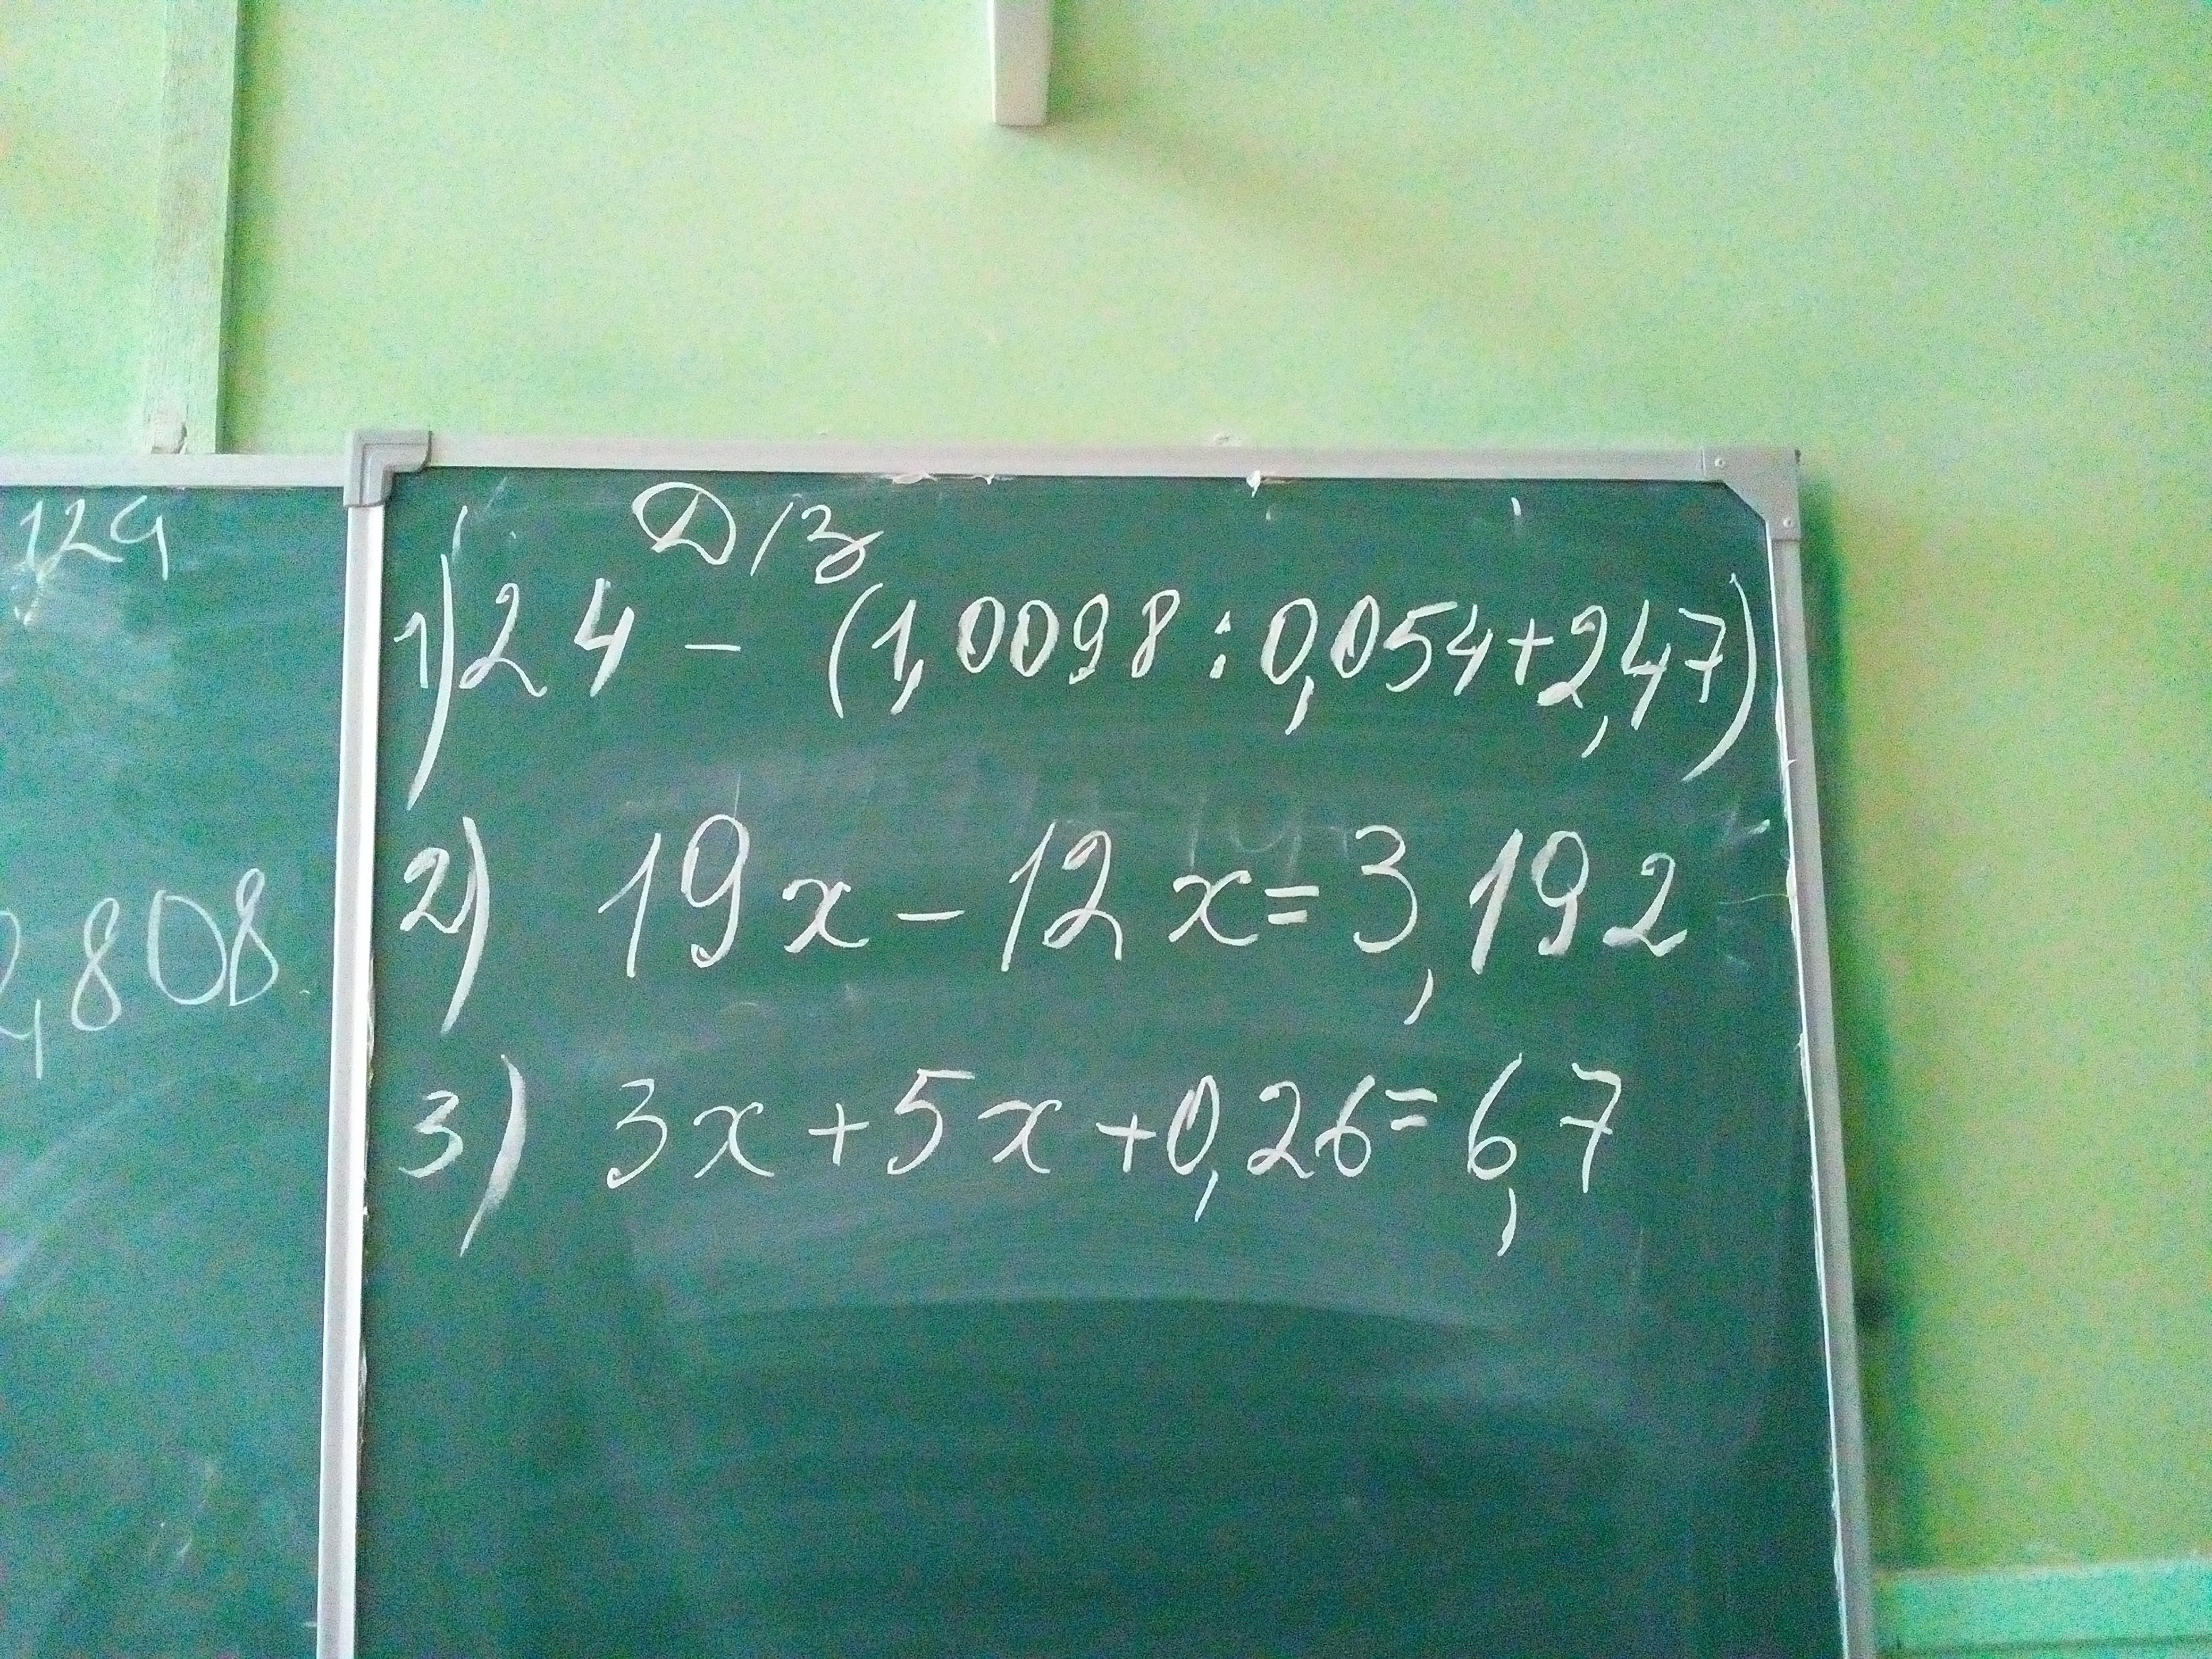 129
2,808
Д/з
1) 24 - (1,0098 : 0,054 + 2,47)
2) 19x - 12x = 3,192
3) 3x + 5x + 0,26 = 6,7